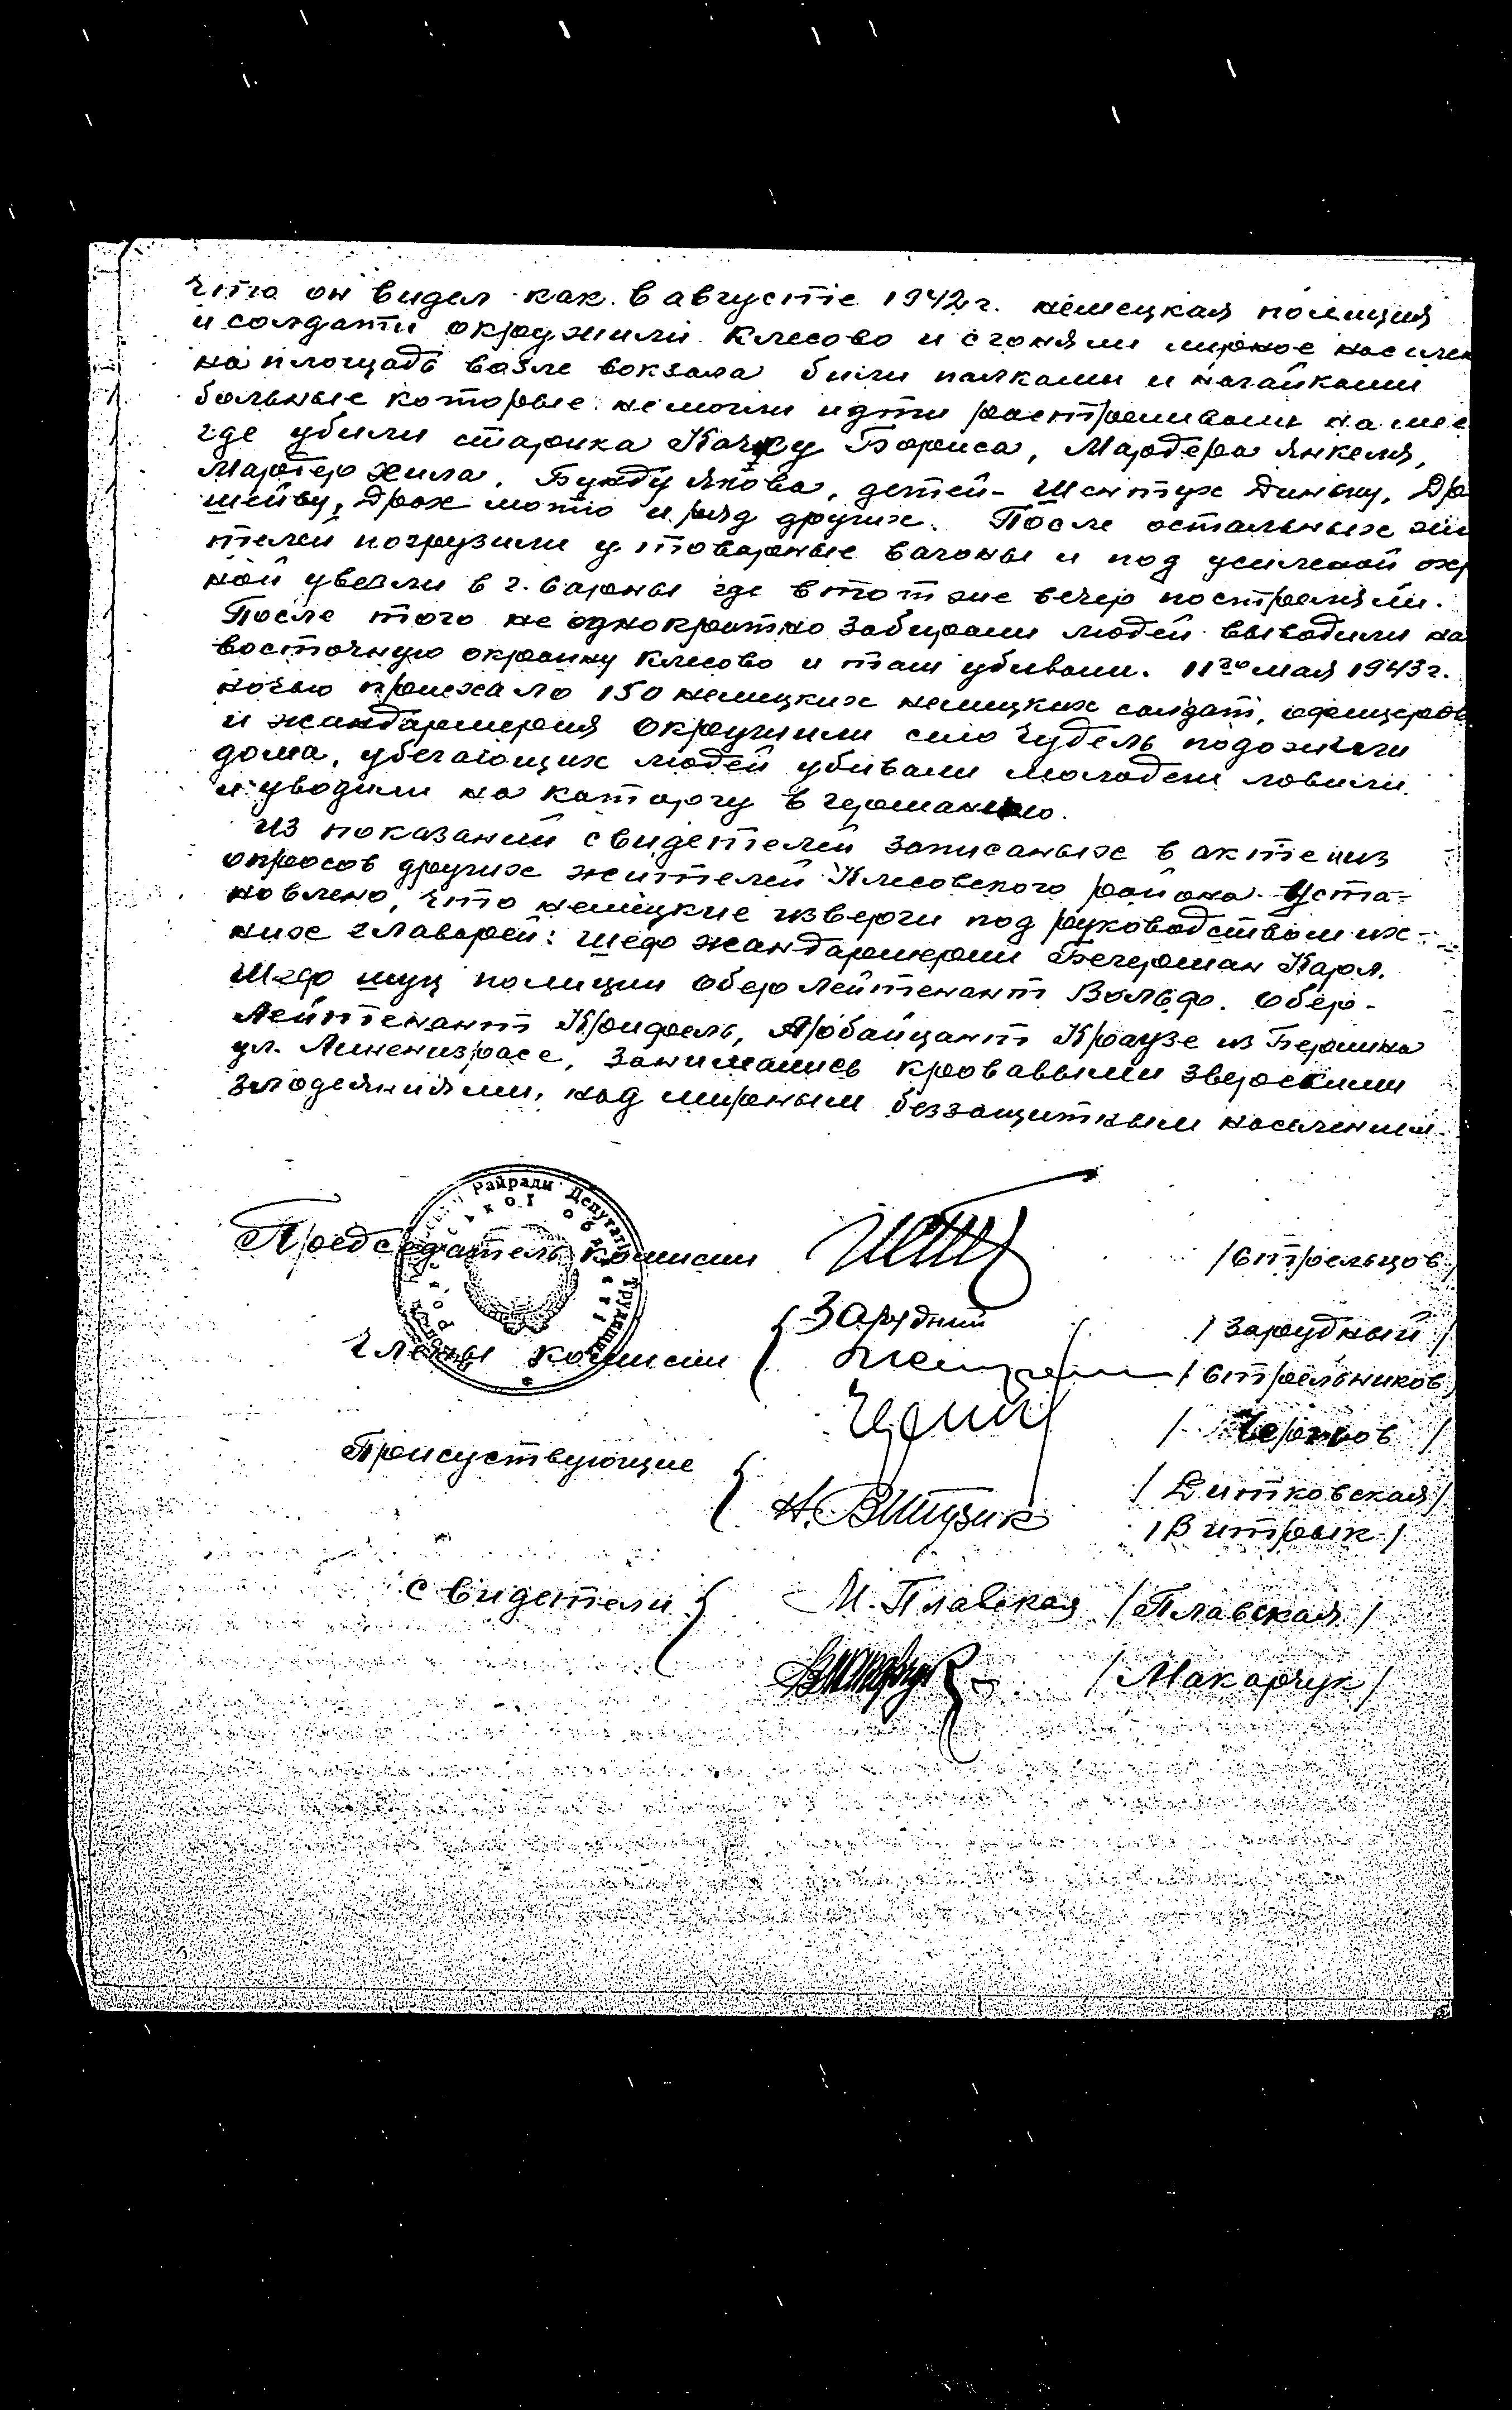 что он видел как в августе 1942 г. немецкая полиция
и солдати окружили Клесово и сгоняли мирное населен
на площадь возле вокзала били палками и нагайками
больные которые немогли идти растреливали на мес
где убили старика Качку Бориса, Мардера Янкеля,
Мардер Хила, Бунду Якова, детей - Шентух Диньку, Др
шейву, Драх мотю и ряд других. После остальных жи
телей погрузили у товарные вагоны и под усиленой охр
ной увезли в г. Сарны где в тот же вечер постреляли.
После того не однократно забирали людей выводили на
восточную окраину Клесово и там убивали. 11го мая 1943 г.
ночью приехало 150 немецких немецких солдат, офицеров
и жандармерия окружили село Чудель подожгли
дома, убегающих людей убивали молодеж ловили
и уводили на каторгу в германию.
Из показаний свидетелей записаных в акте и из
опросов других жителей Клесовского района уста-
новлено, что немецкие изверги под руководством их-
них главарей: шеф жандармерии Бечерман Карл.
Шеф шуц полиции Обер Лейтенант Вольф. Обер-
Лейтенант Крифель, Арбайцант Краузе из Берлина
ул. Линенизрасе, занимались кровавыми зверскими
злодеяниями, над мирным беззащитным населением.
Райради Депутатів Трудящих
Председатель комисии /Стрельцов/
Члены комисии { Зарудний /Зарудный/
/Стрельников/
/Чернов/
Присуствующие { /Дитковская/
Н. Витузик /Витрык/
Свидетели { М. Плавская /Плавская/
/Макарчук/